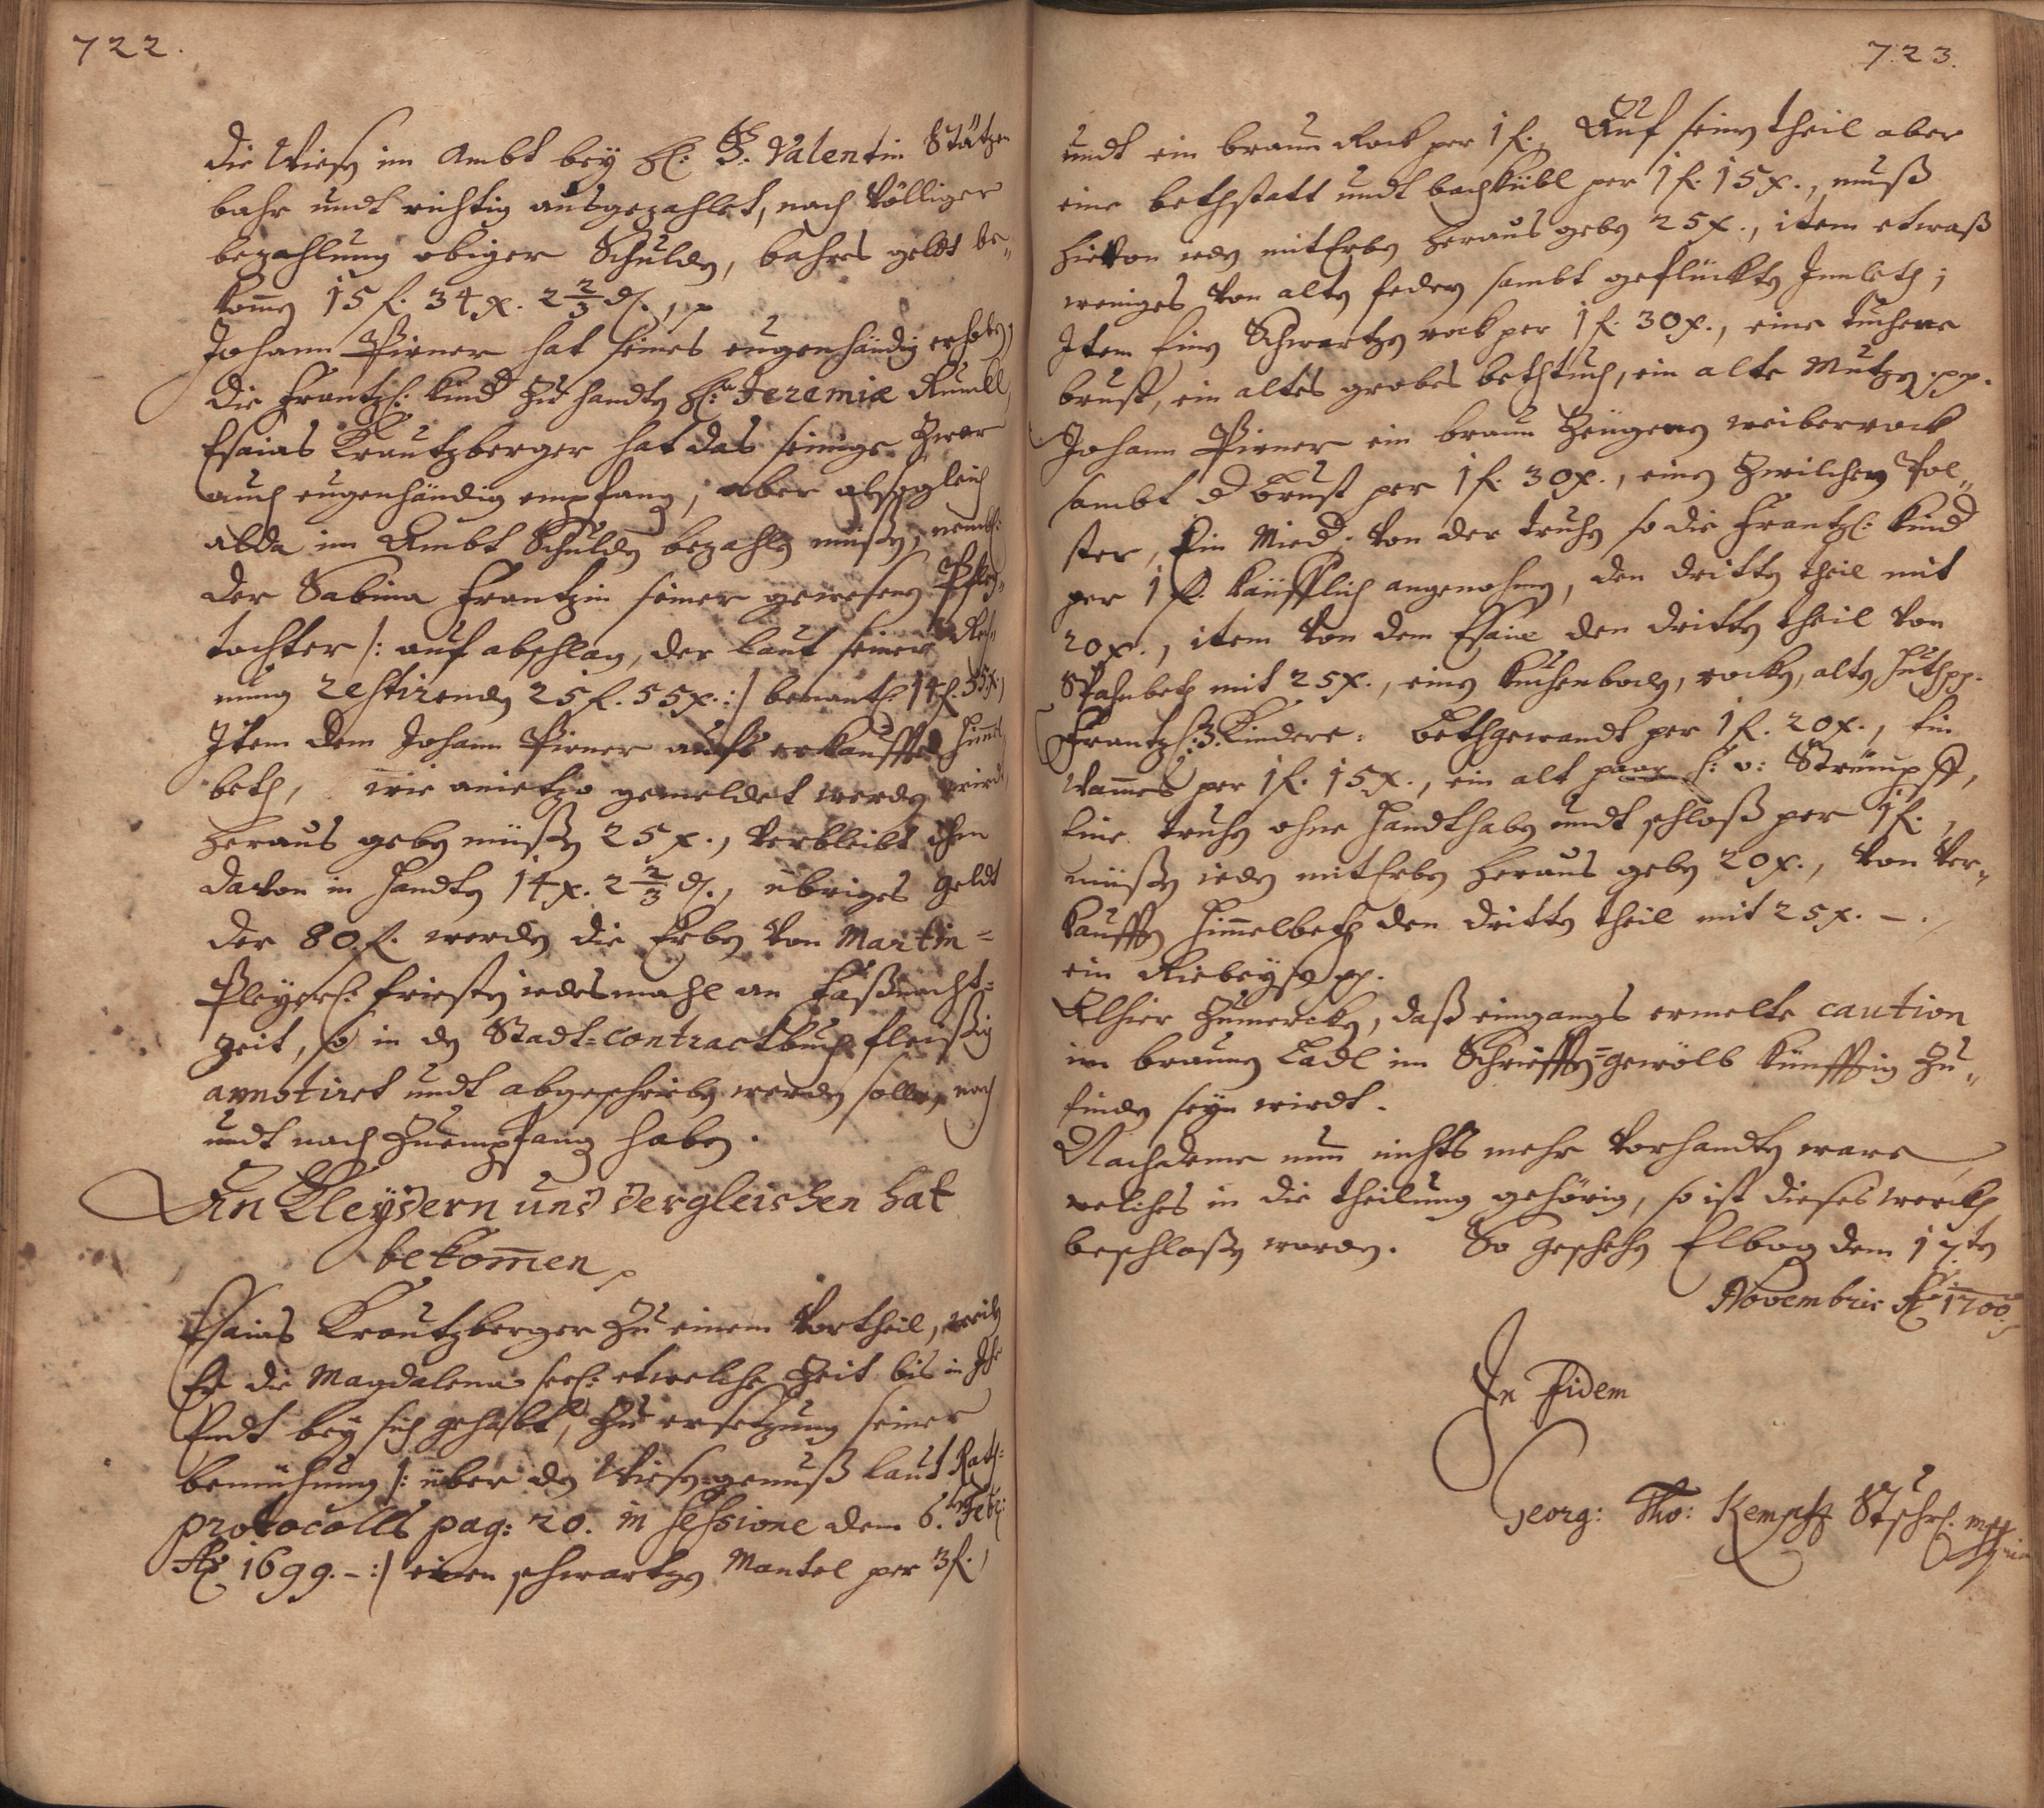 722.
die Wiesen im Ambt bey H: G. Valentin Stätzer
bahr undt richtig ausgezahlet, nach völliger
bezahlung obiger Schulden, bahres geldt be„
komen 15 f. 34 x. 2 2/3 d.,
Johann Pirner hat seines eugenhändig erhoben,
die Frantzl: Kind zu handten H: Jeremiæ
Esaias Krautzberger hat das seinige zwar
auch eugenhändig empfang, aber alsogleich
alda im Ambt Schulden bezahlen müßen, nembl:
der Sabina Frantzin seiner gewesenen Pfleg„
tochter /: auf abschlag, der laut seiner Rech„
nung restirenden 25 f. 55 x. :/ benantl: 14 f. 55 x.,
Item dem Johann Pirner aufs erkauffte Himel„
beth, wie anietzo gemeldet werden wirdt,
heraus geben müßen 25 x., verbleibt ihm
davon in Handten 14 x. 2 2/3 d., übriges geldt
der 80 f. werden die Erben von Martin
Pleyerl: fristen iedesmahl an Faßnacht=
zeit, so in den Stadt=contractbuch fleißig
annotiret undt abgeschrieben werden solle, nach
undt nach zu empfang haben.
An Kleydern und dergleichen hat
bekomen
Esaias Krautzberger zu einem Vortheil, weilen
Er die Magdalena seel: etwelche Zeit bis in Ihr
Endt bey sich gehabt, zu ersetzung seiner
bemühung /: über den Wiesen=genuß laut Rath=
protocolls pag: 20. in Sessione dem 6. Febr:
Ao 1699. – :/ einen schwartzen Mantel per 3 f.,
723.
undt ein braun Rock per 1 f., Auf seinen theil aber
eine bethstatt undt bachkübl per 1 f. 15 x., muß
hievon ieden mit Erben heraus geben 25 x., item etwaß
weniges von alten federn sambt geflückten Innleth;
Item einen Schwartzen rock per 1 f. 30 x., eine tuchene
brust, ein altes grobes bethtuch, ein alte Mutzen pp.
Johann Pirner ein braun Zeugenen weiberrock
sambt d brust per 1 f. 30 x., einen Zwilchen Pol„
ster, Ein Mied. von der truhen so die Frantzl: Kind
per 1 f. käufflich angenohmen, den dritten theil mit
20 x., item von dem Esaiæ den dritten theil von
Spahnbeth mit 25 x., einen Kuchenboden, rocken, alten Huth pp.
Frantzl: 3. Kindere: bethgewandt per 1 f. 20 x., Ein
Wames per 1 f. 15 x., ein alt paar s: v: Strümpff,
Eine truhen ohne Handthaben undt schloß per 1 f.,
müßen ieden mit Erben heraus geben 20 x., von ver„
kaufften Himelbeth den dritten theil mit 25 x. – .
ein pp.
Alhier zumercken, daß eingangs ermelte caution
im braunen Ladl im Schriefften=gewölb künfftig zu„
finden seyn wirdt.
Nachdeme nun nichts mehr vorhandten ware,
welches in die theilung gehörig, so ist dieses werckh
beschloßen worden. So geschehen Elbog dem 17ten
Novembris Ao 1700.
In Fidem
Georg: Tho: Kempf Stschr. mpp